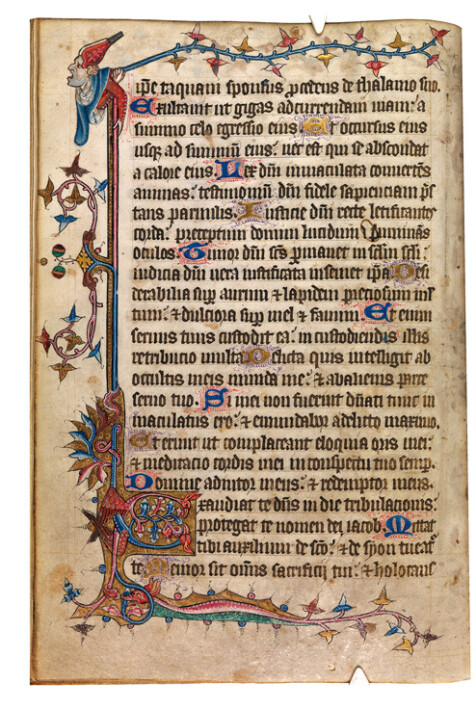 ip̄e taquam sponsus ꝓcedens de thalamo suo.
Exultauit ut gigas ad currendam uiam: a
summo celo egressio eius Et occursus eius
usqꝫ ad summū eius: nec est qui se abscondat
a calore eius. Lex dn̄i inmaculata conuertēs
animas: testimoniū dn̄i fidele sapienciam p̄s
tans paruulis. Iusticie dn̄i recte letificantes
corda: preceptum domini lucidum illuminās
oculos. Timor dn̄i sc̄s ꝑmanet in sc̄lm sc̄li:
iudicia dn̄i uera iustificata in semet ip̄a Desi
derabilia suꝑ aurum & lapidem preciosum ml̄
tum: & dulciora suꝑ mel & fauum. Et enim
seruus tuus custodit ea: in custodiendis illis
retribucio multa Delicta quis intelligit ab
occultis meis munda me: & ab alienis parce
seruo tuo. Si mei non fuerint dn̄ati tunc in
maculatus ero: & emundabor a delicto maximo.
Et erunt ut complaceant eloquia oris mei:
& meditacio cordis mei in conspectu tuo semꝑ.
Domine adiutor meus: & redemptor meus.
Exaudiat te dn̄s in die tribulacionis:
protegat te nomen dei iacob. Mittat
tibi auxilium de sc̄o: & de syon tueat᷑
te Memor sit om̄is sacrificij tui: & holocaus